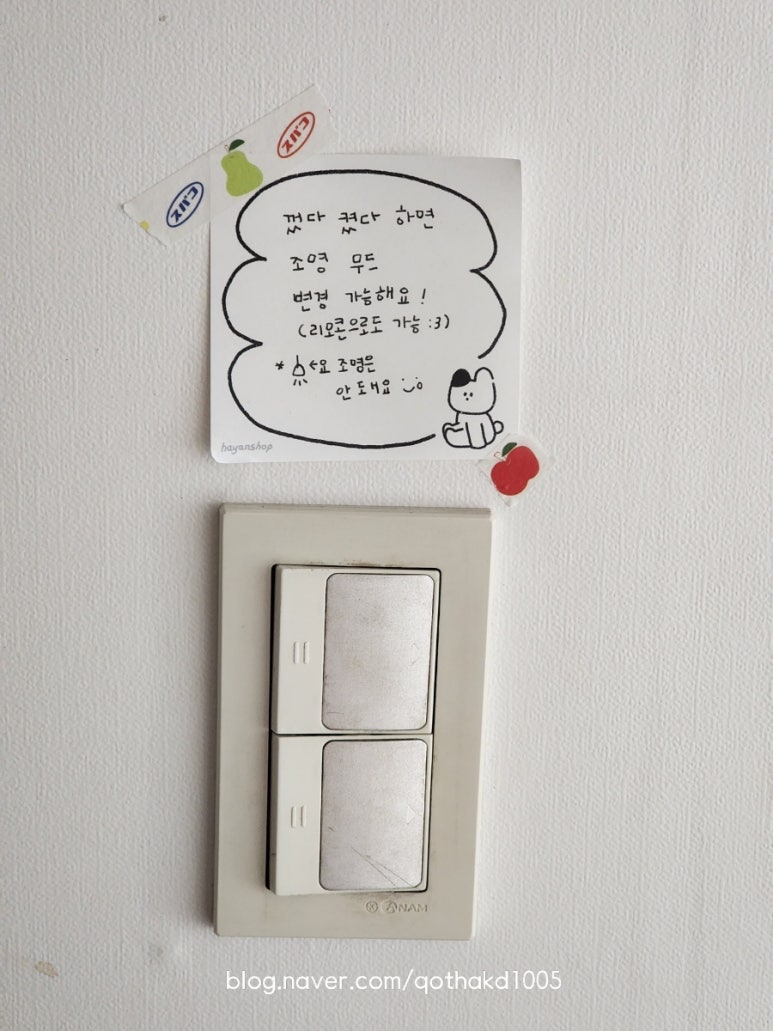 껐다 켰다 하면
조명 무드
변경 가능해요!
(리모콘으로도 가능 :3)
* ←요 조명은
안 돼요
hayanshop
ANAM
blog.naver.com/qothakd1005